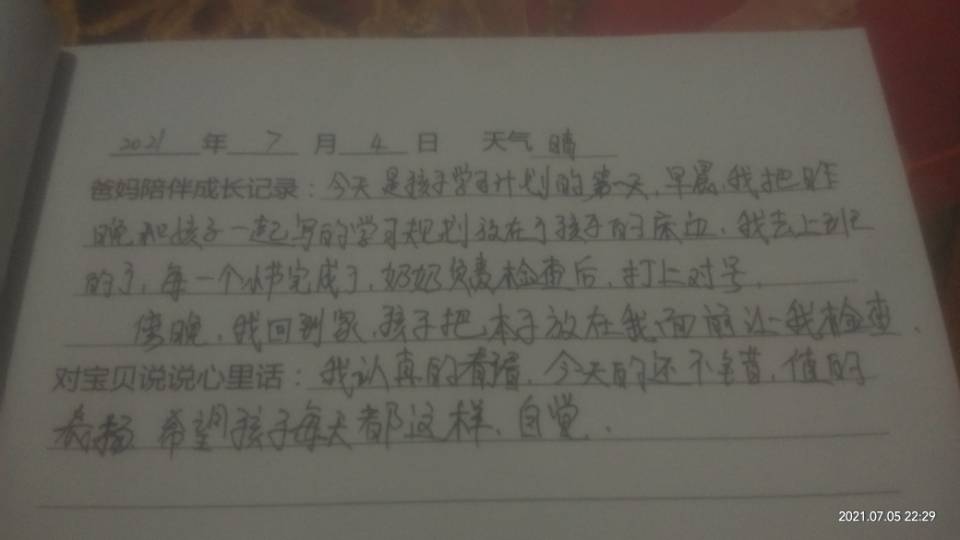 2021年7月4日 天气晴
爸妈陪伴成长记录：今天是孩子学习计划的第一天，早晨，我把昨
晚和孩子一起写的学习规划放在了孩子的床边，我去上班
的了，每一个小节完成了，奶奶负责检查后，打上对号，
傍晚，我回到家，孩子把本子放在我面前让我检查，
对宝贝说说心里话：我认真的看着，今天的还不错，值的
表扬 希望孩子每天都这样，自觉，
2021.07.05 22:29